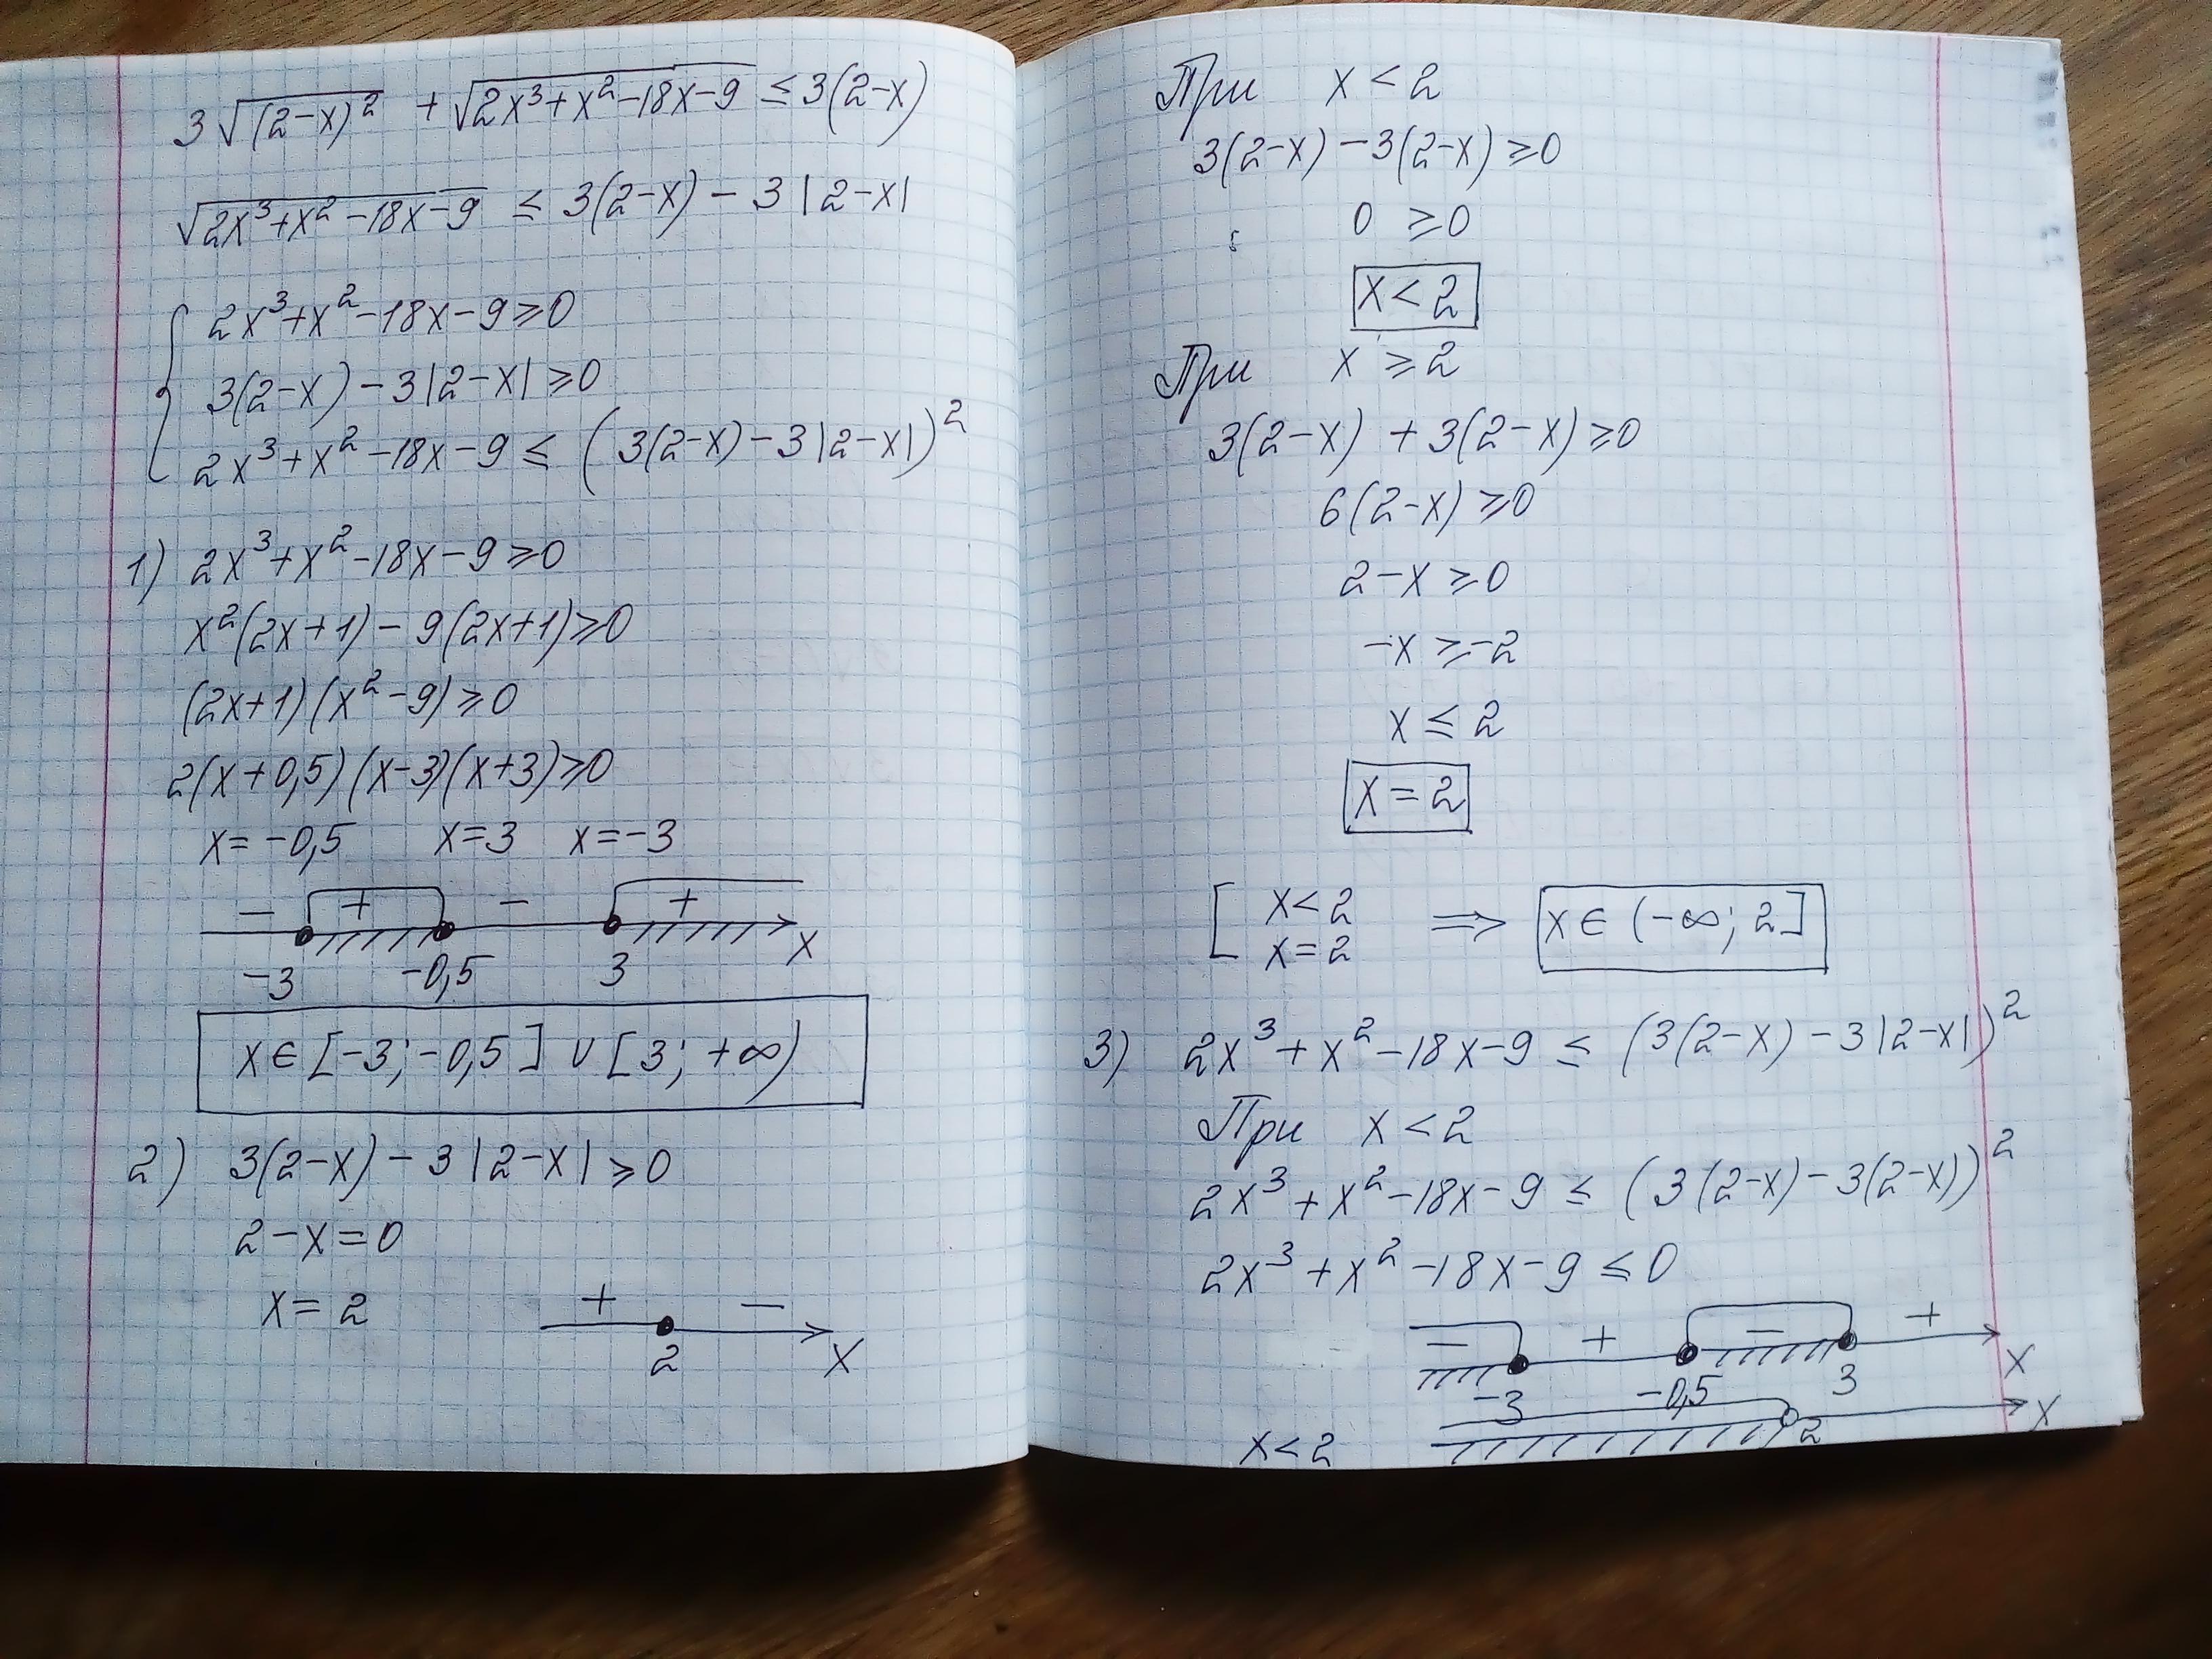 3√(2-x)² + √2x³+x²-18x-9 ≤ 3(2-x)
√2x³+x²-18x-9 ≤ 3(2-x) - 3|2-x|
{ 2x³+x²-18x-9≥0
3(2-x)-3|2-x|≥0
2x³+x²-18x-9 ≤ (3(2-x)-3|2-x|)²
1) 2x³+x²-18x-9≥0
x²(2x+1)-9(2x+1)≥0
(2x+1)(x²-9)≥0
2(x+0,5)(x-3)(x+3)≥0
x=-0,5 x=3 x=-3
- + - +
-3 -0,5 3 x
x∈[-3;-0,5]∪[3;+∞)
2) 3(2-x)-3|2-x|≥0
2-x=0
x=2
+ -
2 x
При x<2
3(2-x)-3(2-x)≥0
0≥0
x<2
При x≥2
3(2-x)+3(2-x)≥0
6(2-x)≥0
2-x≥0
-x≥-2
x≤2
x=2
[ x<2
x=2 ⇒ x∈(-∞;2]
3) 2x³+x²-18x-9 ≤ (3(2-x)-3|2-x|)²
При x<2
2x³+x²-18x-9 ≤ (3(2-x)-3(2-x))²
2x³+x²-18x-9≤0
- + - +
-3 -0,5 3 x
x<2 2 x